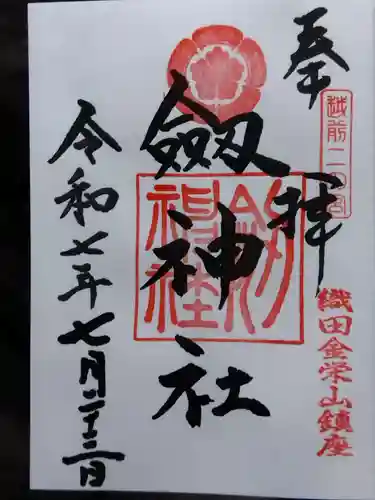 奉拝
越前二の宮
織田金栄山鎮座
劔神社
劔神社
令和七年七月二十三日